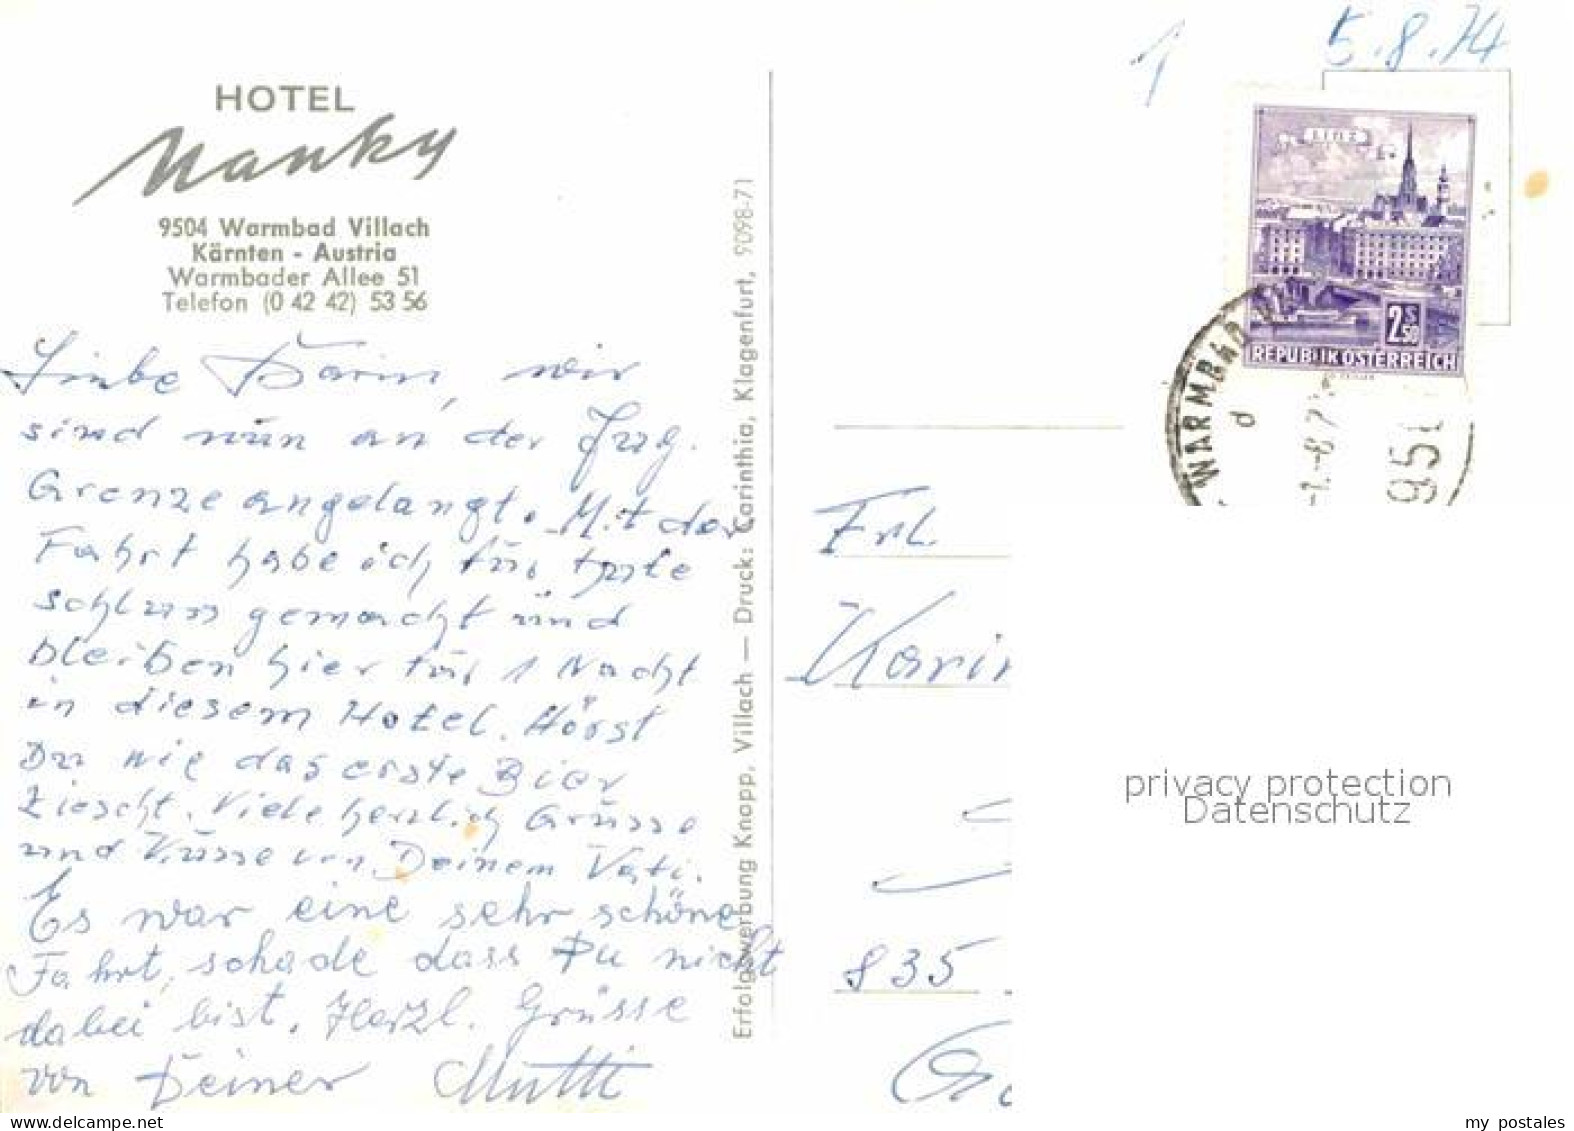 HOTEL
Nanky
9504 Warmbad Villach
Kärnten - Austria
Warmbader Allee 51
Telefon (0 42 42) 53 56
Liebe Karin, wir
sind nun an der Jug.
Grenze angelangt. Mit der
Fahrt habe ich für heute
schluss gemacht und
bleiben hier für 1 Nacht
in diesem Hotel. Hörst
Du wie das erste Bier
zischt. Viele herzlich Grüsse
und Küsse von Deinem Vati.
Es war eine sehr schöne
Fahrt, schade dass Du nicht
dabei bist. Herzl. Grüsse
von Deiner Mutti
Erfolgswerbung Knapp, Villach — Druck: Carinthia, Klagenfurt, 9098-71
1
5.8.74
LINZ
2 S 50
REPUBLIK ÖSTERREICH
WARMBAD
d
Frl.
Karin
835
privacy protection
Datenschutz
www.delcampe.net
my postales